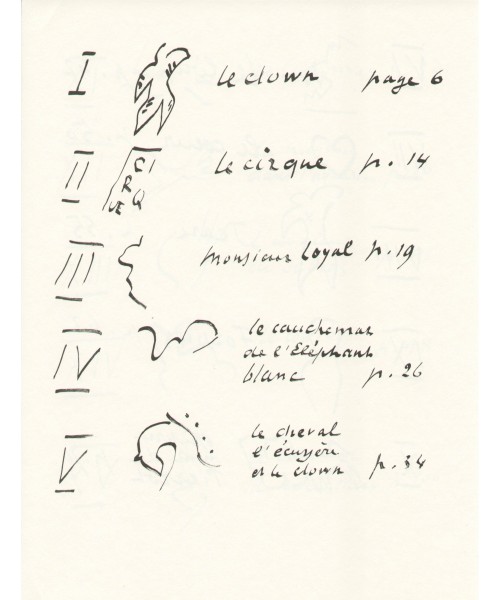 I le clown page 6
II CI
R
Q
UE le cirque p. 14
III monsieur Loyal p. 19
IV le cauchemar
de l'Eléphant
blanc p. 26
V le cheval
l'écuyère
et le clown p. 34